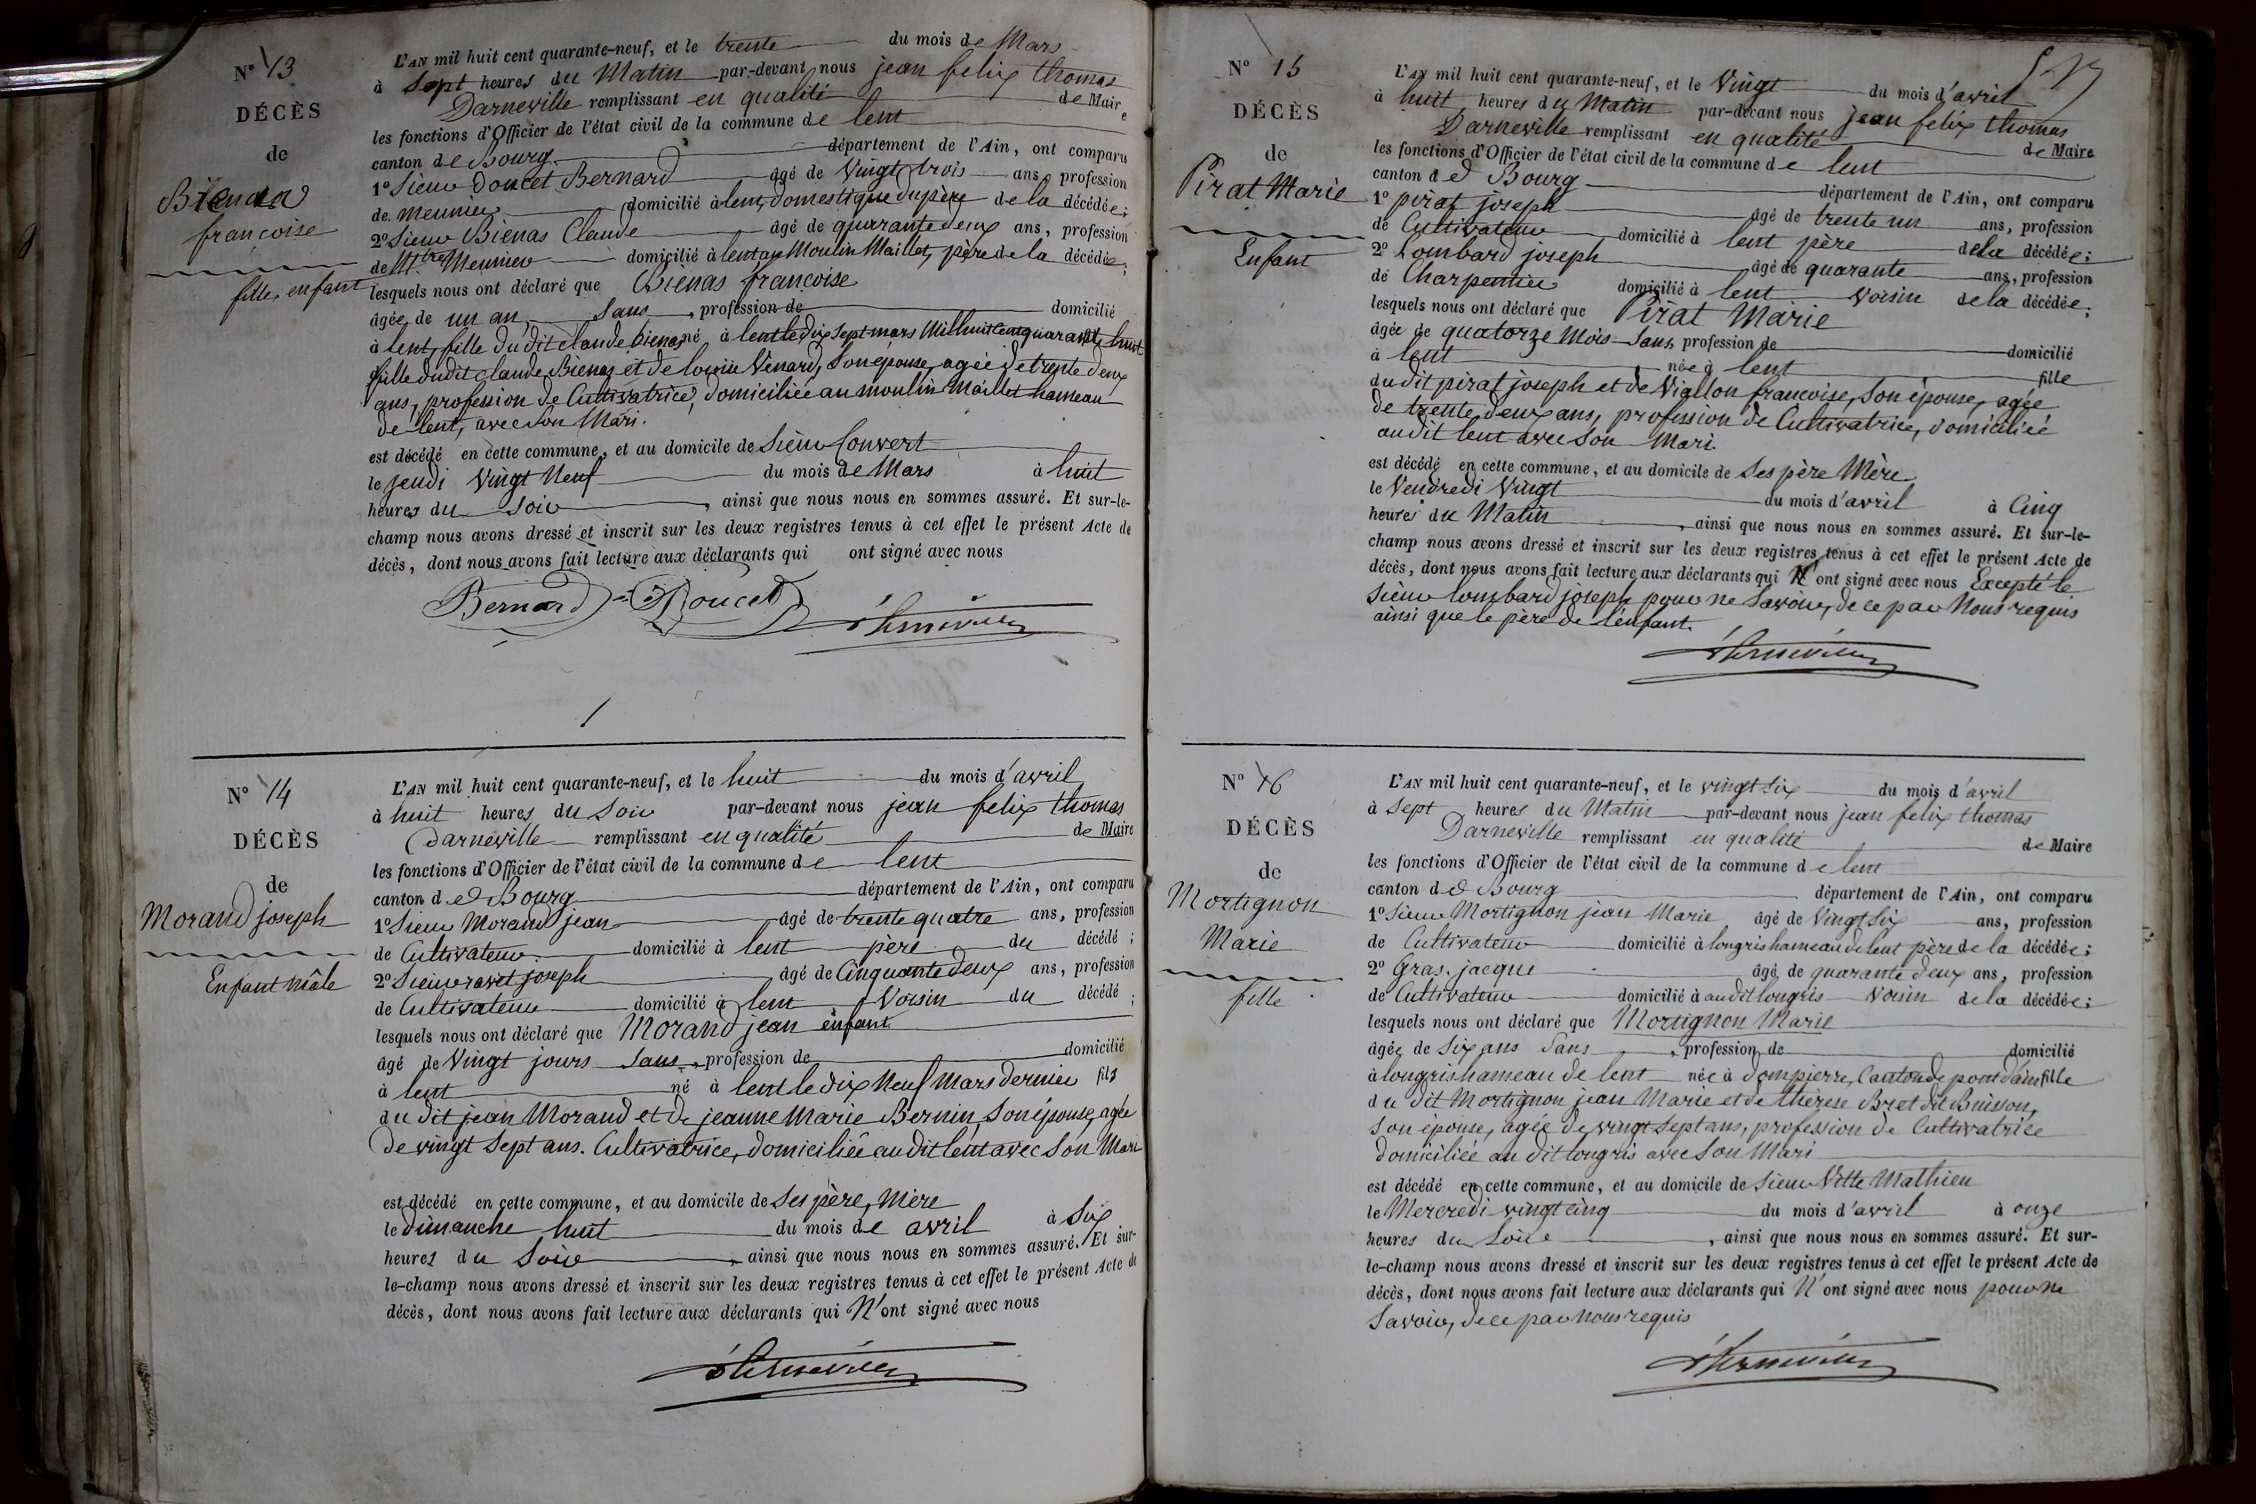 N° 13
DÉCÈS
de
Bienas
françoise
fille, enfant
L'AN mil huit cent quarante-neuf, et le trente du mois de Mars
à Sept heures du Matin par-devant nous jean felix thomas
Darneville remplissant en qualité de Maire
les fonctions d'Officier de l'état civil de la commune de lent
canton de Bourg département de l'Ain, ont comparu
1° Sieur Doucet Bernard âgé de Vingt trois ans, profession
de meunier domicilié à lent, domestique du père de la décédée;
2° Sieur Bienas Claude âgé de quarante deux ans, profession
de Mtre Meunier domicilié à lent au Moulin Maillet, père de la décédée;
lesquels nous ont déclaré que Bienas françoise
âgée de un an, Sans profession de domicilié
à lent, fille du dit claude bienas, né à lent le dix Sept mars Mil huit cent quarante huit
fille du dit claude Bienas et de louise Vénard, Son épouse, agée de trente deux
ans, profession de Cultivatrice, domiciliée au moulin Maillet hameau
de lent, avec Son Mari.
est décédé en cette commune, et au domicile de Sieur Convert
le jeudi Vingt Neuf du mois de Mars à huit
heures du Soir, ainsi que nous nous en sommes assuré. Et sur-le-
champ nous avons dressé et inscrit sur les deux registres tenus à cet effet le présent Acte de
décès, dont nous avons fait lecture aux déclarants qui ont signé avec nous
Bernard Doucet
N° 14
DÉCÈS
de
Morand joseph
Enfant mâle
L'AN mil huit cent quarante-neuf, et le huit du mois d'avril
à huit heures du Soir par-devant nous jean felix thomas
Darneville remplissant en qualité de Maire
les fonctions d'Officier de l'état civil de la commune de lent
canton de Bourg département de l'Ain, ont comparu
1° Sieur Morand jean âgé de trente quatre ans, profession
de Cultivateur domicilié à lent père du décédé;
2° Sieur ravet joseph âgé de Cinquante deux ans, profession
de Cultivateur domicilié à lent Voisin du décédé;
lesquels nous ont déclaré que Morand jean enfant
âgé de Vingt jours Sans profession de domicilié
à lent né à lent le dix Neuf Mars dernier fils
du dit jean Morand et de jeanne Marie Bernin, Son épouse, agée
de vingt Sept ans. Cultivatrice, domiciliée au dit lent avec Son Mari
est décédé en cette commune, et au domicile de Ses père, Mère
le dimanche huit du mois de avril à Six
heures du Soir, ainsi que nous nous en sommes assuré. Et sur-
le-champ nous avons dressé et inscrit sur les deux registres tenus à cet effet le présent Acte de
décès, dont nous avons fait lecture aux déclarants qui N'ont signé avec nous
N° 15
DÉCÈS
de
Pirat Marie
Enfant
L'AN mil huit cent quarante-neuf, et le Vingt du mois d'avril
à huit heures du Matin par-devant nous jean felix thomas
Darneville remplissant en qualité de Maire
les fonctions d'Officier de l'état civil de la commune de lent
canton de Bourg département de l'Ain, ont comparu
1° pirat joseph âgé de trente un ans, profession
de Cultivateur domicilié à lent père de la décédée;
2° Lombard joseph âgé de quarante ans, profession
de Charpentier domicilié à lent Voisin de la décédée;
lesquels nous ont déclaré que Pirat Marie
âgée de quatorze Mois Sans profession de domicilié
à lent née à lent fille
du dit pirat joseph et de Viallon françoise, Son épouse, agée
de trente deux ans, profession de Cultivatrice, domiciliée
au dit lent avec Son Mari.
est décédé en cette commune, et au domicile de Ses père Mère
le Vendredi Vingt du mois d'avril à Cinq
heures du Matin, ainsi que nous nous en sommes assuré. Et sur-le-
champ nous avons dressé et inscrit sur les deux registres tenus à cet effet le présent Acte de
décès, dont nous avons fait lecture aux déclarants qui N'ont signé avec nous Excepté le
Sieur lombard joseph pour ne Savoir, de ce par Nous requis
ainsi que le père de l'enfant.
N° 16
DÉCÈS
de
Mortignon
Marie
fille
L'AN mil huit cent quarante-neuf, et le vingt six du mois d'avril
à Sept heures du Matin par-devant nous jean felix thomas
Darneville remplissant en qualité de Maire
les fonctions d'Officier de l'état civil de la commune de lent
canton de Bourg département de l'Ain, ont comparu
1° Sieur Mortignon jean Marie âgé de Vingt Six ans, profession
de Cultivateur domicilié à longris hameau de lent père de la décédée;
2° Gras jacque âgé de quarante deux ans, profession
de Cultivateur domicilié à au dit longris Voisin de la décédée;
lesquels nous ont déclaré que Mortignon Marie
âgée de Six ans Sans, profession de domicilié
à longris hameau de lent née à dompierre, Canton de pont d'ain fille
du dit Mortignon jean Marie et de thérèse Bret dit Buisson,
Son épouse, agée de vingt Sept ans, profession de Cultivatrice
domiciliée au dit longris avec Son Mari
est décédé en cette commune, et au domicile de Sieur Vitte Mathieu
le Mercredi vingt cinq du mois d'avril à onze
heures du Soir, ainsi que nous nous en sommes assuré. Et sur-
le-champ nous avons dressé et inscrit sur les deux registres tenus à cet effet le présent Acte de
décès, dont nous avons fait lecture aux déclarants qui N'ont signé avec nous pour ne
Savoir, de ce par nous requis